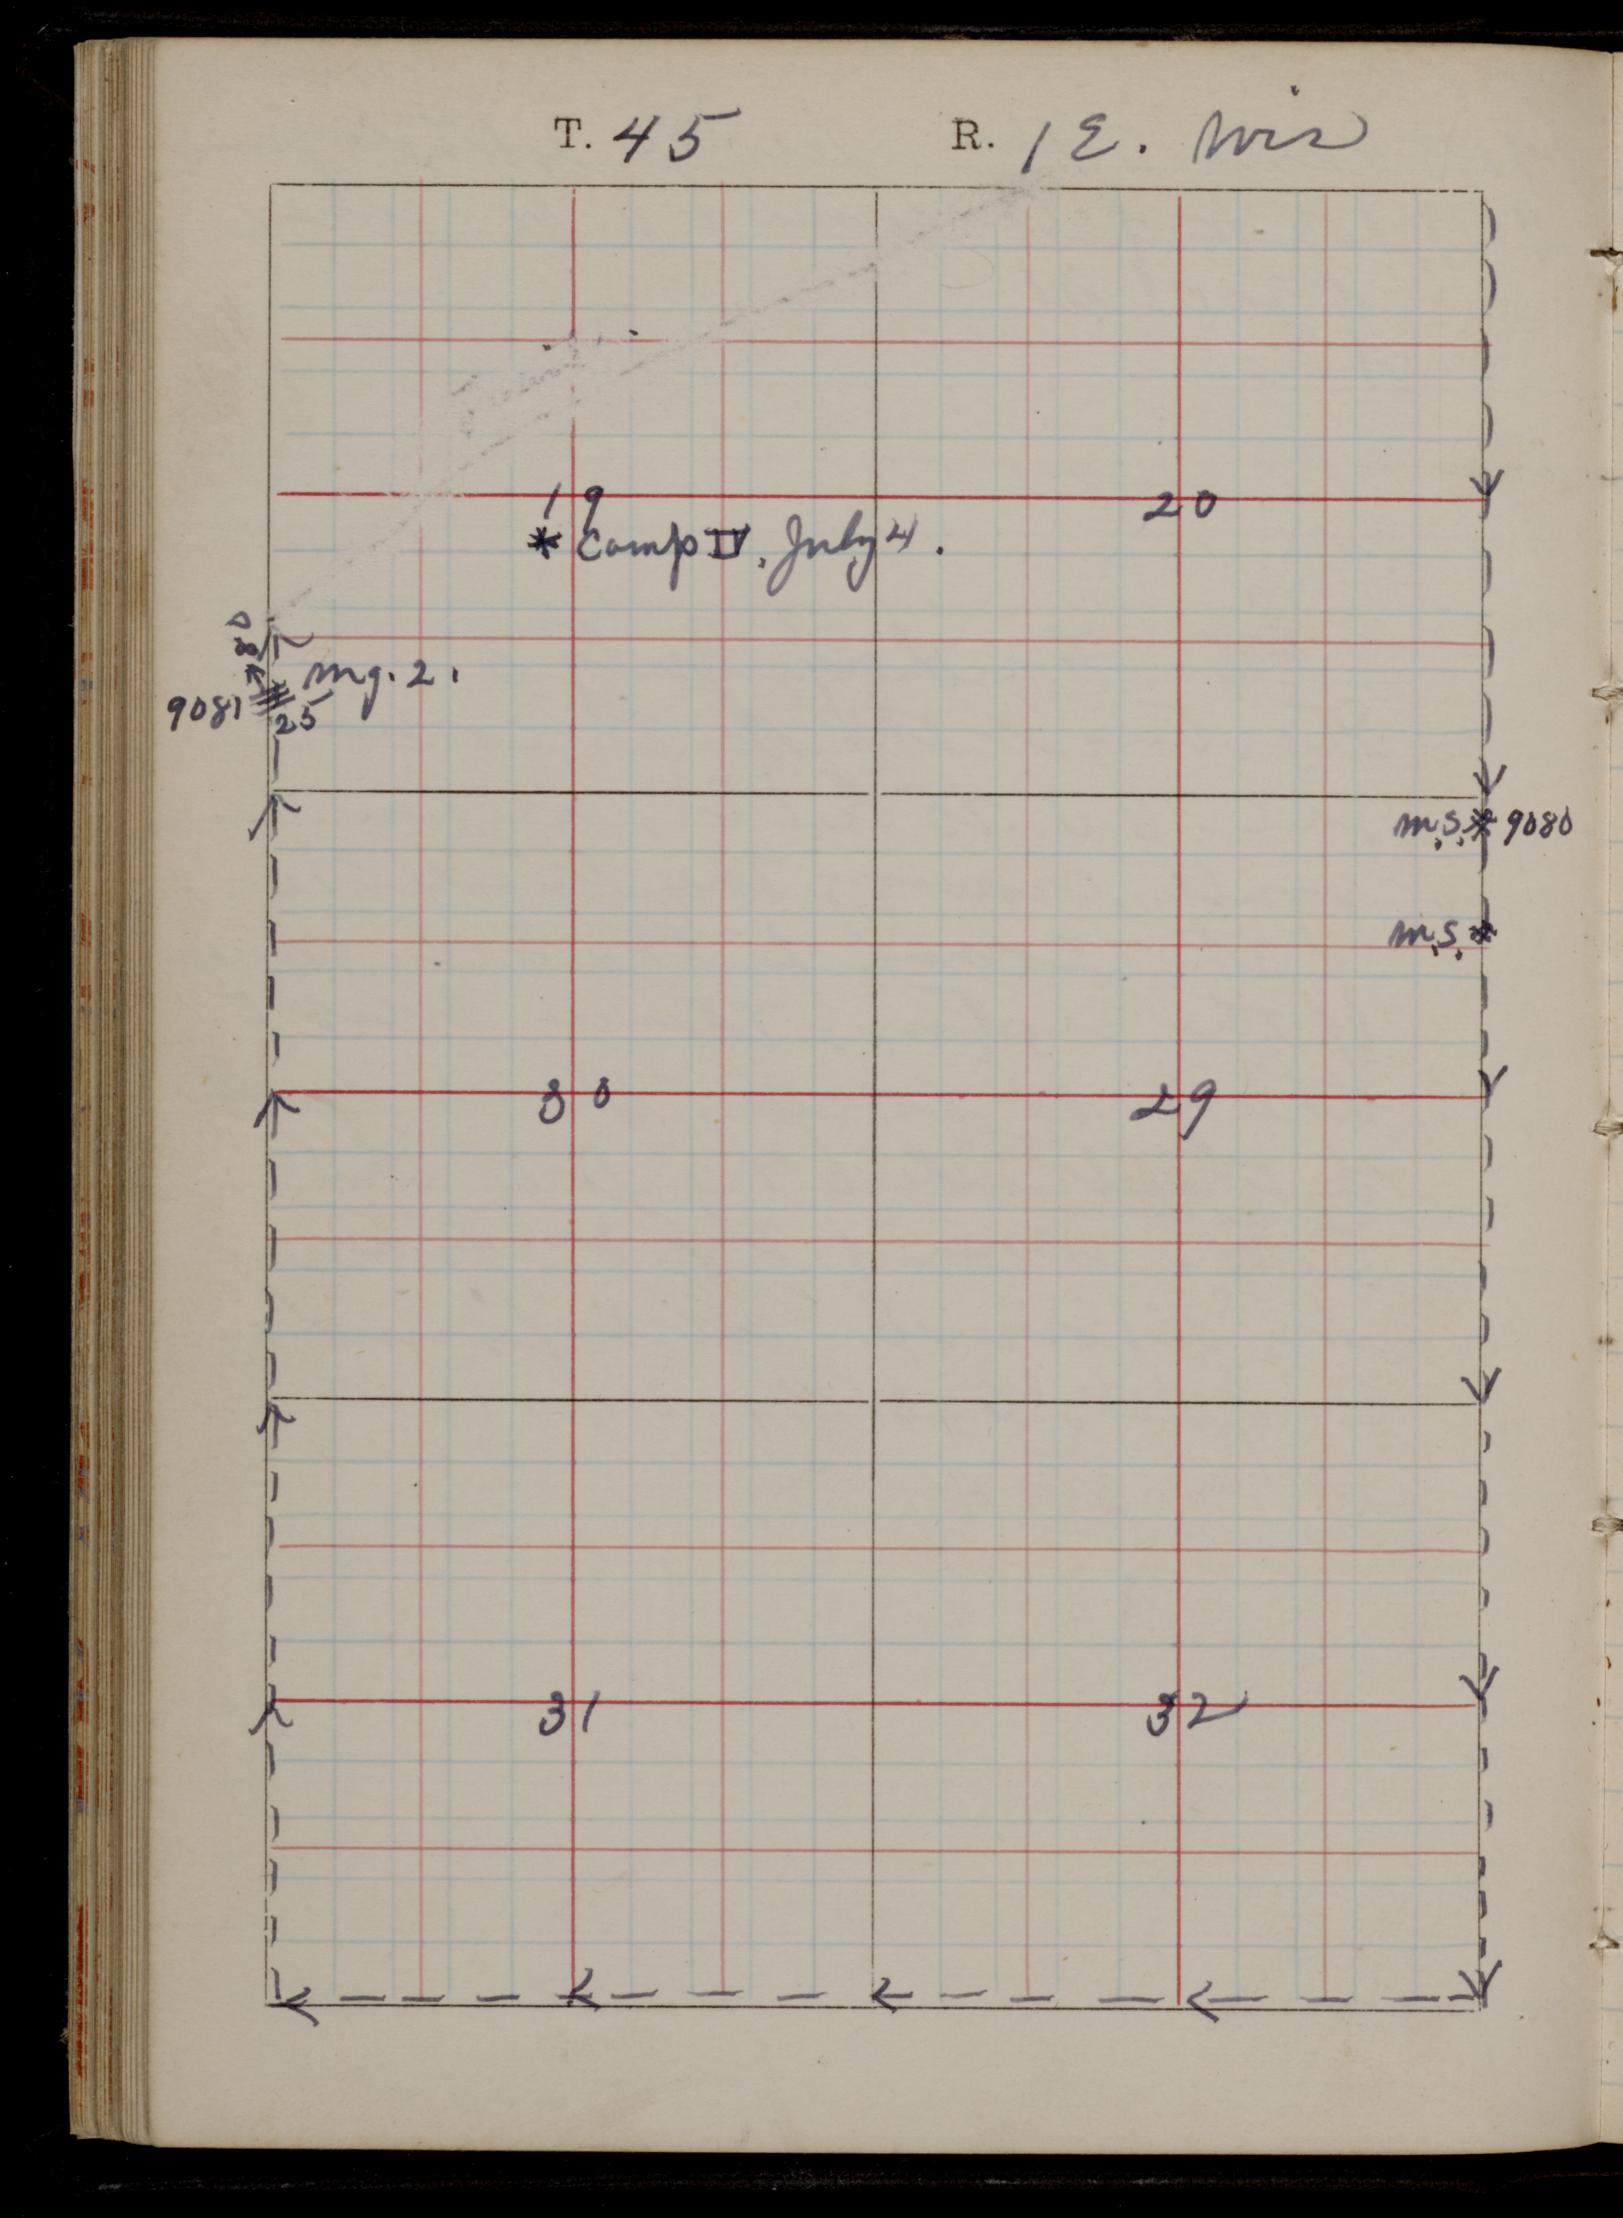 T. 45 R. 1 E. Wis
19 20
* Camp IV. July 4.
mg. 2.
9081 25
m.s. 9080
m.s.
30 29
31 32